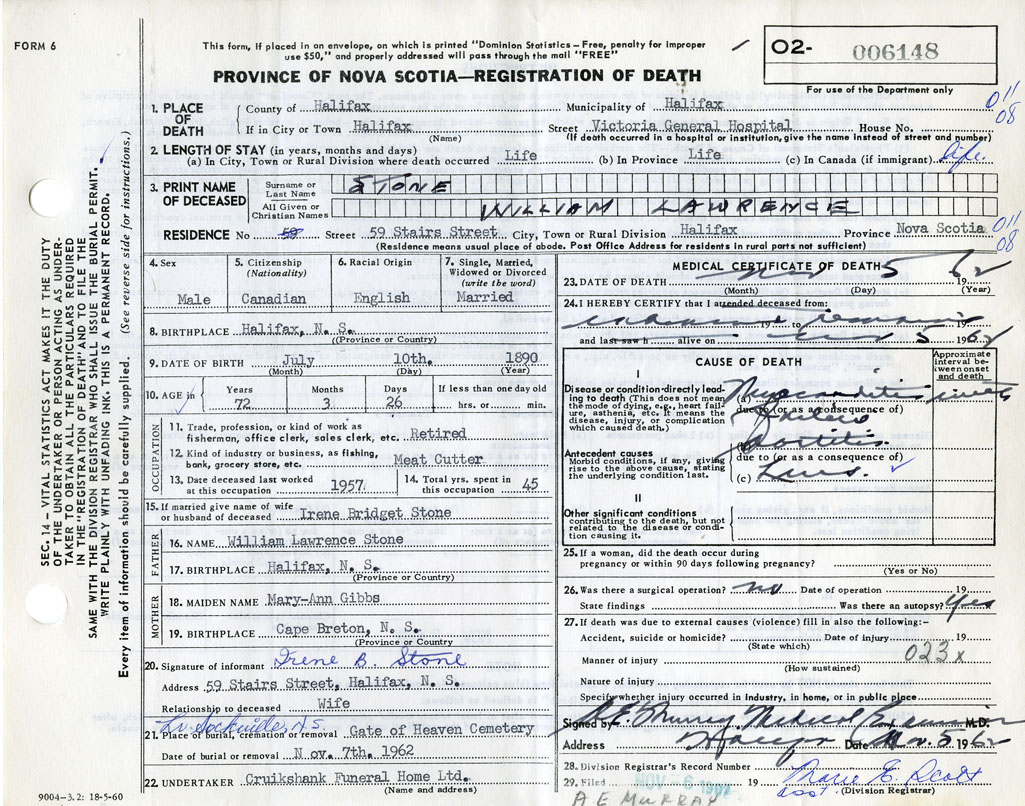 FORM 6
This form, if placed in an envelope, on which is printed "Dominion Statistics – Free, penalty for improper
use $50," and properly addressed will pass through the mail "FREE"
PROVINCE OF NOVA SCOTIA—REGISTRATION OF DEATH
O2- 006148
For use of the Department only
SEC. 14 – VITAL STATISTICS ACT MAKES IT THE DUTY
OF THE UNDERTAKER OR PERSON ACTING AS UNDER-
TAKER TO OBTAIN ALL THE PARTICULARS REQUIRED
IN THE "REGISTRATION OF DEATH" AND TO FILE THE
SAME WITH THE DIVISION REGISTRAR WHO SHALL ISSUE THE BURIAL PERMIT.
WRITE PLAINLY WITH UNFADING INK. THIS IS A PERMANENT RECORD.
Every item of information should be carefully supplied. (See reverse side for instructions.)
1. PLACE OF DEATH
County of Halifax Municipality of Halifax
011
08
If in City or Town Halifax Street Victoria General Hospital House No.
(Name) (If death occurred in hospital or institution, give the name instead of street and number)
2. LENGTH OF STAY (in years, months and days)
(a) In City, Town or Rural Division where death occurred Life (b) In Province Life (c) In Canada (if immigrant) life.
3. PRINT NAME OF DECEASED
Surname or Last Name STONE
All Given or Christian Names WILLIAM LAWRENCE
RESIDENCE No 59 Street 59 Stairs Street City, Town or Rural Division Halifax Province Nova Scotia
011
08
(Residence means usual place of abode. Post Office Address for residents in rural parts not sufficient)
4. Sex
Male
5. Citizenship
(Nationality)
Canadian
6. Racial Origin
English
7. Single, Married,
Widowed or Divorced
(write the word)
Married
8. BIRTHPLACE Halifax, N. S.
(Province or Country)
9. DATE OF BIRTH July 10th, 1890
(Month) (Day) (Year)
10. AGE in Years 72 Months 3 Days 26 If less than one day old
hrs. or min.
OCCUPATION
11. Trade, profession, or kind of work as
fisherman, office clerk, sales clerk, etc. Retired
12. Kind of industry or business, as fishing,
bank, grocery store, etc. Meat Cutter
13. Date deceased last worked
at this occupation 1957
14. Total yrs. spent in
this occupation 45
15. If married give name of wife
or husband of deceased Irene Bridget Stone
FATHER
16. NAME William Lawrence Stone
17. BIRTHPLACE Halifax, N. S.
(Province or Country)
MOTHER
18. MAIDEN NAME Mary-Ann Gibbs
19. BIRTHPLACE Cape Breton, N. S.
(Province or Country)
20. Signature of informant Irene B. Stone
Address 59 Stairs Street, Halifax, N. S.
Relationship to deceased Wife
21. Place of burial, cremation or removal Gate of Heaven Cemetery
Date of burial or removal Nov. 7th. 1962
22. UNDERTAKER Cruikshank Funeral Home Ltd.
(Name and address)
9004–3.2: 18-5-60
MEDICAL CERTIFICATE OF DEATH
23. DATE OF DEATH Nov 5 62
(Month) (Day) (Year)
24. I HEREBY CERTIFY that I attended deceased from:
19 to 19
and last saw h alive on Nov 5 1962
CAUSE OF DEATH
Approximate
interval be-
tween onset
and death
I
Disease or condition directly lead-
ing to death (This does not mean
the mode of dying, e.g., heart fail-
ure, asthenia, etc. It means the
disease, injury, or complication
which caused death.)
(a)
due to (or as a consequence of)
Antecedent causes
Morbid conditions, if any, giving
rise to the above cause, stating
the underlying condition last.
due to (or as a consequence of)
(c) Lues.
II
Other significant conditions
contributing to the death, but not
related to the disease or condi-
tion causing it.
25. If a woman, did the death occur during
pregnancy or within 90 days following pregnancy?
(Yes or No)
26. Was there a surgical operation? no Date of operation 19
State findings Was there an autopsy? Yes
27. If death was due to external causes (violence) fill in also the following:–
Accident, suicide or homicide? Date of injury 19
(State which)
Manner of injury 023x
(How sustained)
Nature of injury
Specify whether injury occurred in industry, in home, or in public place
Signed by A E. Murray Medical Examiner M.D.
Address Halifax Date Nov. 5 1962
28. Division Registrar's Record Number
29. Filed NOV – 6 1962 19 Marie E. Scott
asst. (Division Registrar)
A E MURRAY